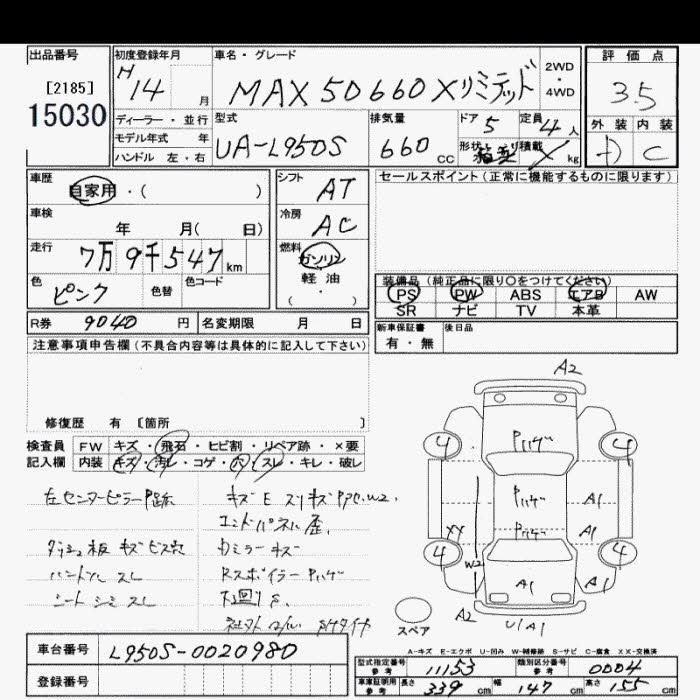 出品番号
[2185]
15030
初度登録年月
H14 月
車名・グレード
MAX 50 660 Xリミテッド
2WD
・
4WD
評価点
3.5
外装 内装
C
ディーラー・並行
モデル年式 年
ハンドル 左・右
型式
UA-L950S
排気量
660 CC
ドア 5
定員 4人
形状
積載 kg
車歴
自家用・( )
車検
年 月( 日)
走行
7万9千547km
色
ピンク
色替
色コード
シフト
AT
冷房
AC
燃料
ガソリン
軽油
( ・ )
セールスポイント(正常に機能するものに限ります)
装備品(純正品に限り○をつけてください)
PS PW ABS エアB AW
SR ナビ TV 本革
新車保証書
有・無
後日品
R券 9040 円
名変期限 月 日
注意事項申告欄(不具合内容等は具体的に記入して下さい)
修復歴 有 〔箇所 〕
検査員
記入欄
FW キズ・飛石・ヒビ割・リペア跡・×要
内装 キズ・汚レ・コゲ・穴・スレ・キレ・破レ
左センターピラーP跡
ダッシュ板キズビス穴
ハンドルスレ
シートシミスレ
キズ E スリキズ PPC.W2.
エンドパネル歪.
カミラーキズ
Rスポイラー Pハゲ
下廻りS.
A2
4
4
4
4
Pハゲ
Pハゲ
Pハゲ
A1
A1
A1
A1
XX
W2
A2
U1A1
スペア
A-キズ E-エクボ U-凹み W-補修跡 S-サビ C-腐食 XX-交換済
車台番号
L950S-0020980
登録番号
型式指定番号
参考
11153
類別区分番号
参考
0004
車庫証明用
参考
長さ 339 cm
幅 147 cm
高さ 155 cm